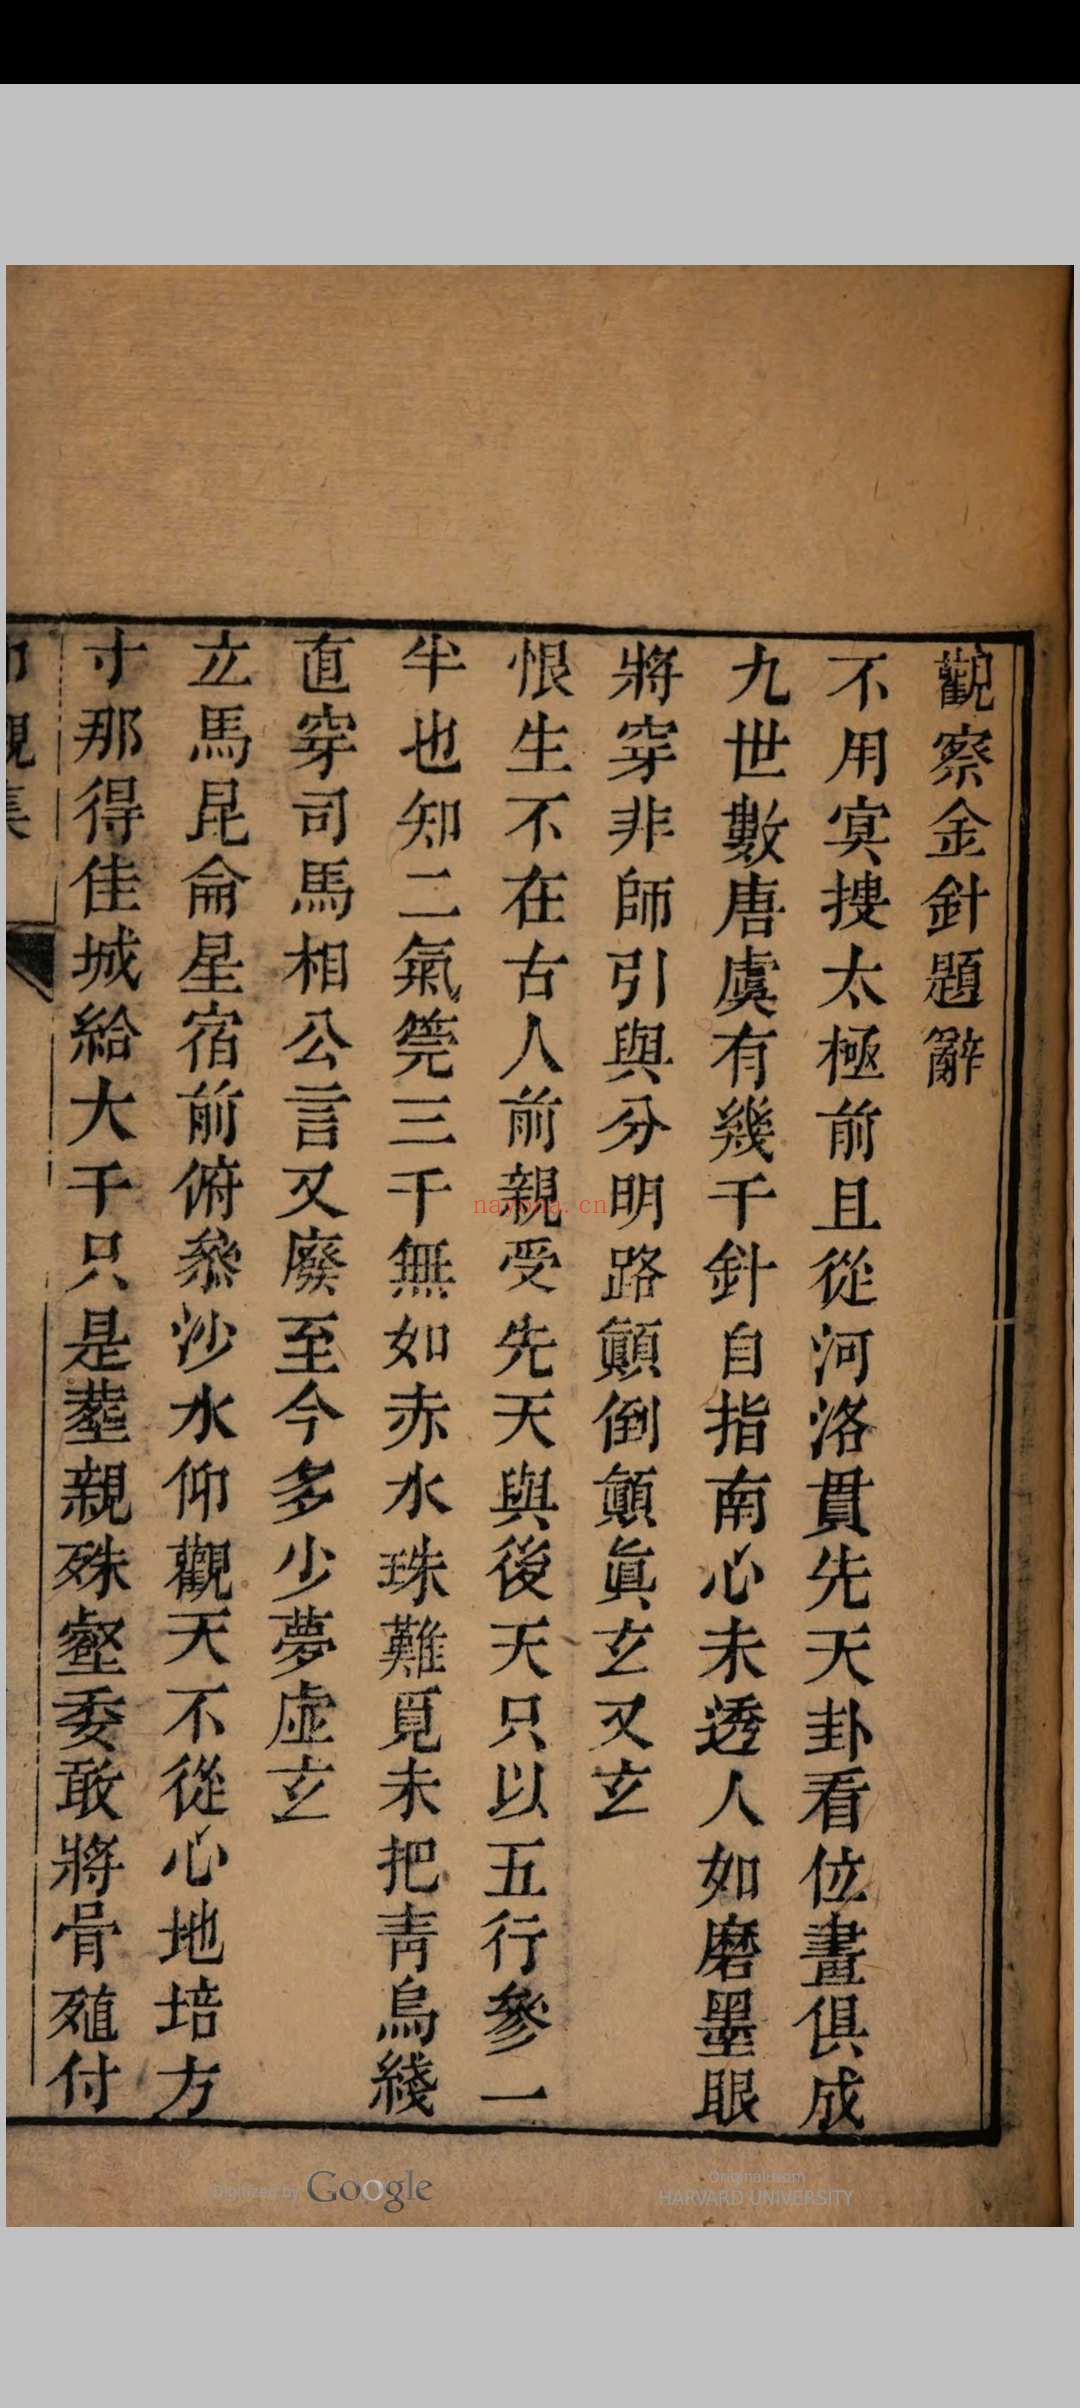 觀察金針題辭
不用㝠搜太極前且從河洛貫先天卦看位畫俱成
九世數唐虞有幾千針自指南心未透人如磨墨眼
將穿非師引與分明路顛倒顛眞玄又玄
恨生不在古人前親受先天與後天只以五行參一
半也知二氣筦三千無如赤水珠難覓未把青烏綫
直穿司馬相公言又廢至今多少夢虛玄
立馬昆侖星宿前俯叅沙水仰觀天不從心地培方
寸那得佳城給大千只是塟親殊壑委敢將骨殖付
nayona.cn
Digitized by Google
Original from
HARVARD UNIVERSITY